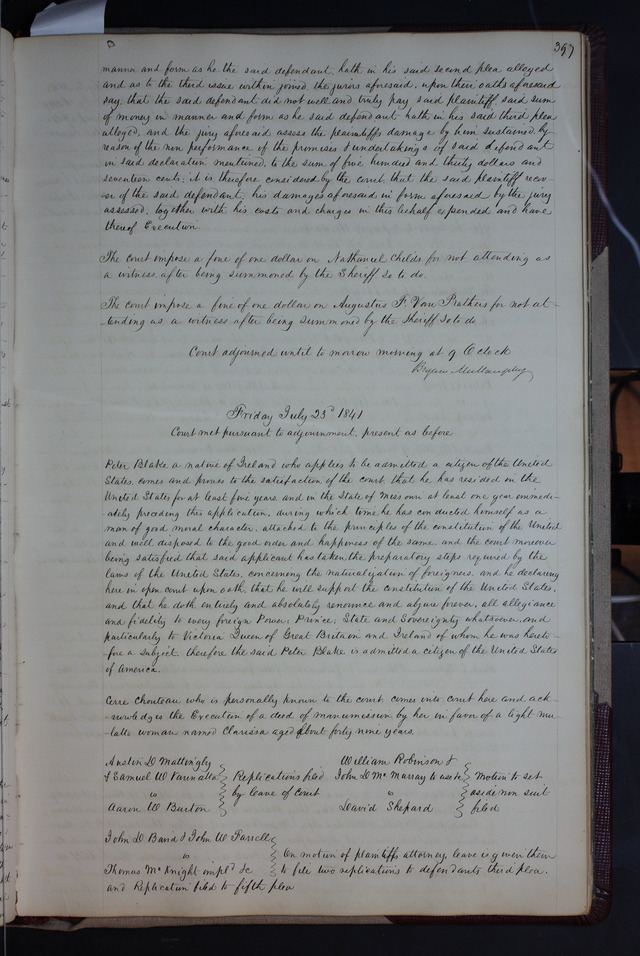 397
manner and form as he the said defendant hath in his said second plea alleged
and as to the third issue within joined the jurors aforesaid, upon their oaths aforesaid
say, that the said defendant did not well and truly pay said plaintiff said sum
of money in manner and form as he said defendant hath in his said third plea
alleged, and the jury aforesaid assess the plaintiffs damage by him sustained by
reason of the non performance of the promises & undertakings of said defendant
in said declaration mentioned, to the sum of five hundred and thirty dollars and
seventeen cents; it is therefore considered by the court, that the said plaintiff recov-
er of the said defendant, his damages aforesaid in form aforesaid by the jury
assessed, together with his costs and charges in this behalf expended and have
thereof Execution
The court impose a fine of one dollar on Nathaniel Childs for not attending as
a witness after being summoned by the Sheriff so to do.
The court impose a fine of one dollar on Augustus F. Van Prathers for not at-
tending as a witness after being summoned by the Sheriff so to do
Court adjourned until to morrow morning at 9 O clock
Bryan Mullanphy
Friday July 23d 1841
Court met pursuant to adjournment, present as before
Peter Blake a native of Ireland who applies to be admitted a citizen of the United
States, comes and proves to the satisfaction of the court, that he has resided in the
United States for at least five years and in the State of Missouri at least one year immedi-
ately preceding this application, during which time he has conducted himself as a
man of good moral character, attached to the principles of the constitution of the United
and well disposed to the good order and happiness of the same and the court moreover
being satisfied that said applicant has taken the preparatory steps required by the
laws of the United States, concerning the naturalization of foreigners, and he declaring
here in open court upon oath, that he will support the constitution of the United States,
and that he doth entirely and absolutely renounce and abjure forever, all allegiance
and fidelity to every foreign Power, Prince, State and Sovereignty whatsoever, and
particularly to Victoria Queen of Great Britain and Ireland of whom he was hereto-
fore a subject, therefore the said Peter Blake is admitted a citizen of the United States
of America.
Cerre Chouteau who is personally known to the court comes into court here and ack-
nowledges the Execution of a deed of manumission by her in favor of a light mu-
latto woman named Clarissa aged about forty nine years.
Austin D Mattingly
& Samuel W
vs
Aaron W Burton
Replications filed
by leave of court
William Robinson &
John D McMurray to use &c
vs
David Shepard
Motion to set
aside non suit
filed
John D David & John W Farrell
vs
Thomas McKnight impld &c
On motion of plaintiffs attorney leave is given them
to file two replications to defendants third plea.
and Replication filed to fifth plea